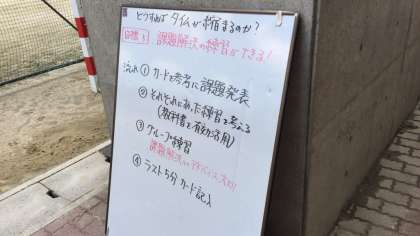 どうすればタイムが縮まるのか?
目標 課題解決の練習ができる!
流れ ① カードを参考に課題発表
② それぞれにあった練習を考える
(教科書を有効活用)
③ グループ練習
課題解決 アドバイス
④ ラスト5分 カード記入